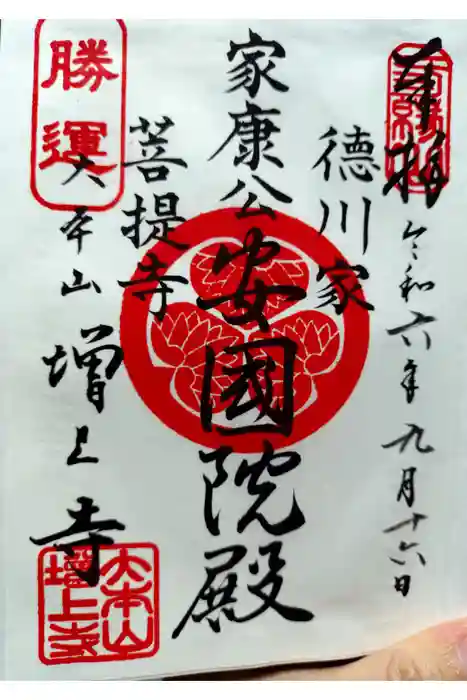 奉拝
令和六年九月十六日
徳川家
家康公
安國院殿
菩提寺
勝運
大本山増上寺
大本山
増上寺